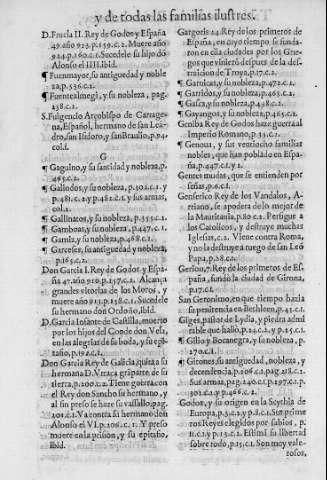 y de todas las familias ilustres.
D. Fruela II. Rey de Godos y España
49. año 923. p.159.c.2. Muere año
924.p.160.c.1. Sucedele su hijo dõ
Alonso el IIII. Ibid.
¶ Fuenmayor, su antiguedad y noble
za, p.536.c.2.
¶ Fuentealmegi, y su nobleza, pag.
238.c.1.
S. Fulgencio Arçobispo de Cartage-
na, Español, hermano de san Lea-
dro, san Isidoro, y san Braulio, p.94.
col.1.
G
¶ Gaguino, y su santidad y nobleza, p.
465.c.2.
¶ Gallodos, y su nobleza, p.302.c.1. y
p.481.c.2. y 482.c.1. y sus armas,
col.2.
¶ Gallinatos, y su nobleza, p.355.c.1.
¶ Gamboas, y su nobleza, p.447.c.1.
¶ Gamiz, y su nobleza, p.468.c.1.
¶ Garceses, su antiguedad y nobleza,
p.165.c.2.
Don Garcia I. Rey de Godos, y Espa-
ña 47. año 910. p.157.c.2. Alcança
grandes vitorias de los Moros, y
muere año 913. p.158.c.1. Sucedele
su hermano don Ordoño, Ibid.
D. Garcia Infante de Castilla, muerto
por los hijos del Conde don Vela,
en las alegrias de su boda, y su epi-
tafio, p.192.c.1.
Don Garcia Rey de Galicia, quita a su
hermana D. Vrraca grã parte de su
tierra, p.200.c.2. Tiene guerra con
el Rey don Sancho su hermano, y
al fin preso se haze su vassallo pag.
201.c.1. Va contra su hermano don
Alonso el VI. p.206.c.1. Y preso
muere en la prision, y su epitafio,
Ibid.
Gargoris 24. Rey de los primeros de
España, en cuyo tiempo se funda-
ron en ella ciudades por los Grie-
gos que viniero despues de la des-
truicion de Troya, p.17.c.2.
¶ Garnicas, y su nobleza, p.472.c.1.
¶ Garridos, y su nobleza, p.465.c.2.
¶ Gasca, y su nobleza, p.498.c.2.
¶ Gayangos, y su nobleza, p.465.c.1.
Genisa Rey de Godos haze guerra al
Imperio Romano, p.35.c.1.
¶ Genoua, y sus veintiocho familias
nobles, que han poblado en Espa-
ña, p.447.c.1. y 2.
Gentes mudas, que se entienden por
señas, p.6.c.1.
Genserico Rey de los Vandalos, Ar-
riano, se apodera de lo mejor de
la Mauritania, p.80.c.2. Persigue a
los Catolicos, y destruye muchas
Iglesias, c.2. Viene contra Roma,
y no la destruye a ruego de san Leõ
Papa, p.28.c.2.
Gerion, 7. Rey de los primeros de Es-
paña, fundò la ciudad de Girona,
p.17.c.1.
San Geronimo, en que tiempo hazia
su penitencia en Bethleen, p.45.c.1.
Giges, paisar de Lydia, y piedra admi
rable que hallò, p.14.c.1. y p.15.c.1.
¶ Gilio y Bocanegra, y su nobleza, p.
270.c.1.
¶ Girones, su antiguedad, nobleza, y
decendencia, p.206.c.1. pag.218.c.1.
Sus armas, pag.240.c.1. p.297.c.1. p.
302.c.2. y p.466.c.2.
Godos, y su origen en la Scythia de
Europa, p.3.c.2. y p.8.c.1. Sus prime
ros Reyes elegidos por sabios, p.
11.c.1. y p.13.c.2. Estimã su libertad
sobre todo, p.15.c.1. Son muy vale-
rosos,